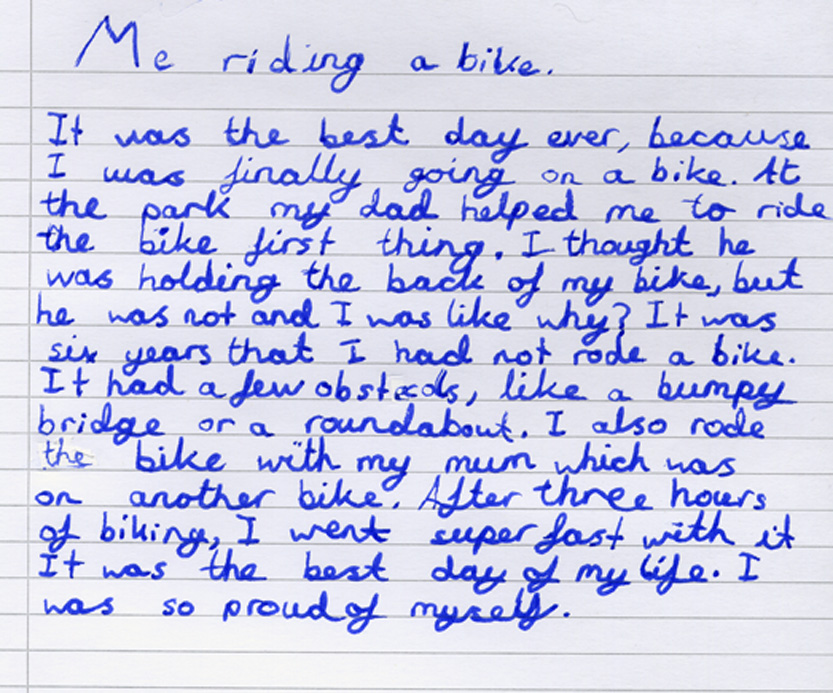 Me riding a bike.
It was the best day ever, because
I was finally going on a bike. At
the park my dad helped me to ride
the bike first thing. I thought he
was holding the back of my bike, but
he was not and I was like why? It was
six years that I had not rode a bike.
It had a few obstecds, like a bumpy
bridge or a roundabout. I also rode
the bike with my mum which was
on another bike. After three hours
of biking, I went super fast with it
It was the best day of my life. I
was so proud of myself.